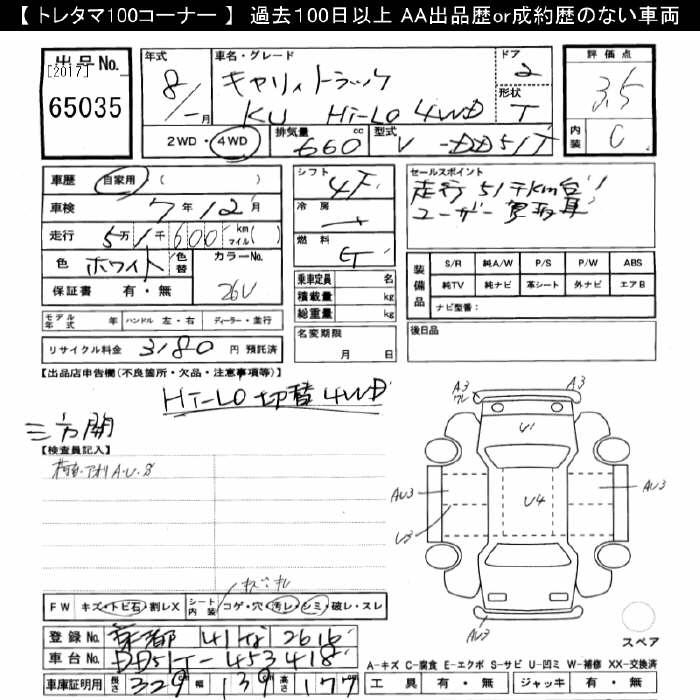 【 トレタマ100コーナー 】 過去100日以上 AA出品歴or成約歴のない車両
出品No. 年式 車名・グレード ドア 評価点
[2017] 8/-月 キャリィトラック 2 3.5
65035 KU Hi-Lo 4WD 形状 T 内装 C
2WD・4WD 排気量 660 cc 型式 V-DD51T
車歴 自家用 ( ) シフト 4F セールスポイント
車検 7年12月 冷房 走行51千km台!
走行 5万1千600 km マイル( ) 燃料 ユーザー買取車
色 ホワイト 色替 カラーNo. 26U
保証書 有・無 乗車定員 名
積載量 kg
総重量 kg
装備品 S/R 純A/W P/S P/W ABS
純TV 純ナビ 革シート 外ナビ エアB
ナビ型番:
モデル年式 年 ハンドル 左・右 ディーラー・並行 名変期限 月 日 後日品
リサイクル料金 3180 円 預託済
【出品店申告欄(不良箇所・欠品・注意事項等)】
Hi-Lo 切替 4WD
三方開
【検査員記入】
A・U・S
A3
A3
U1
AU3
U4
AU3
U3
AU3
FW キズ・トビ石・割レX シート内装 コゲ・穴・汚レ・シミ・破レ・スレ
スペア
登録No. 京都 41 な 2616
車台No. DD51T-453418
A-キズ C-腐食 E-エクボ S-サビ U-凹ミ W-補修 XX-交換済
車庫証明用 長さ 329 幅 139 高さ 177 工具 有・無 ジャッキ 有・無